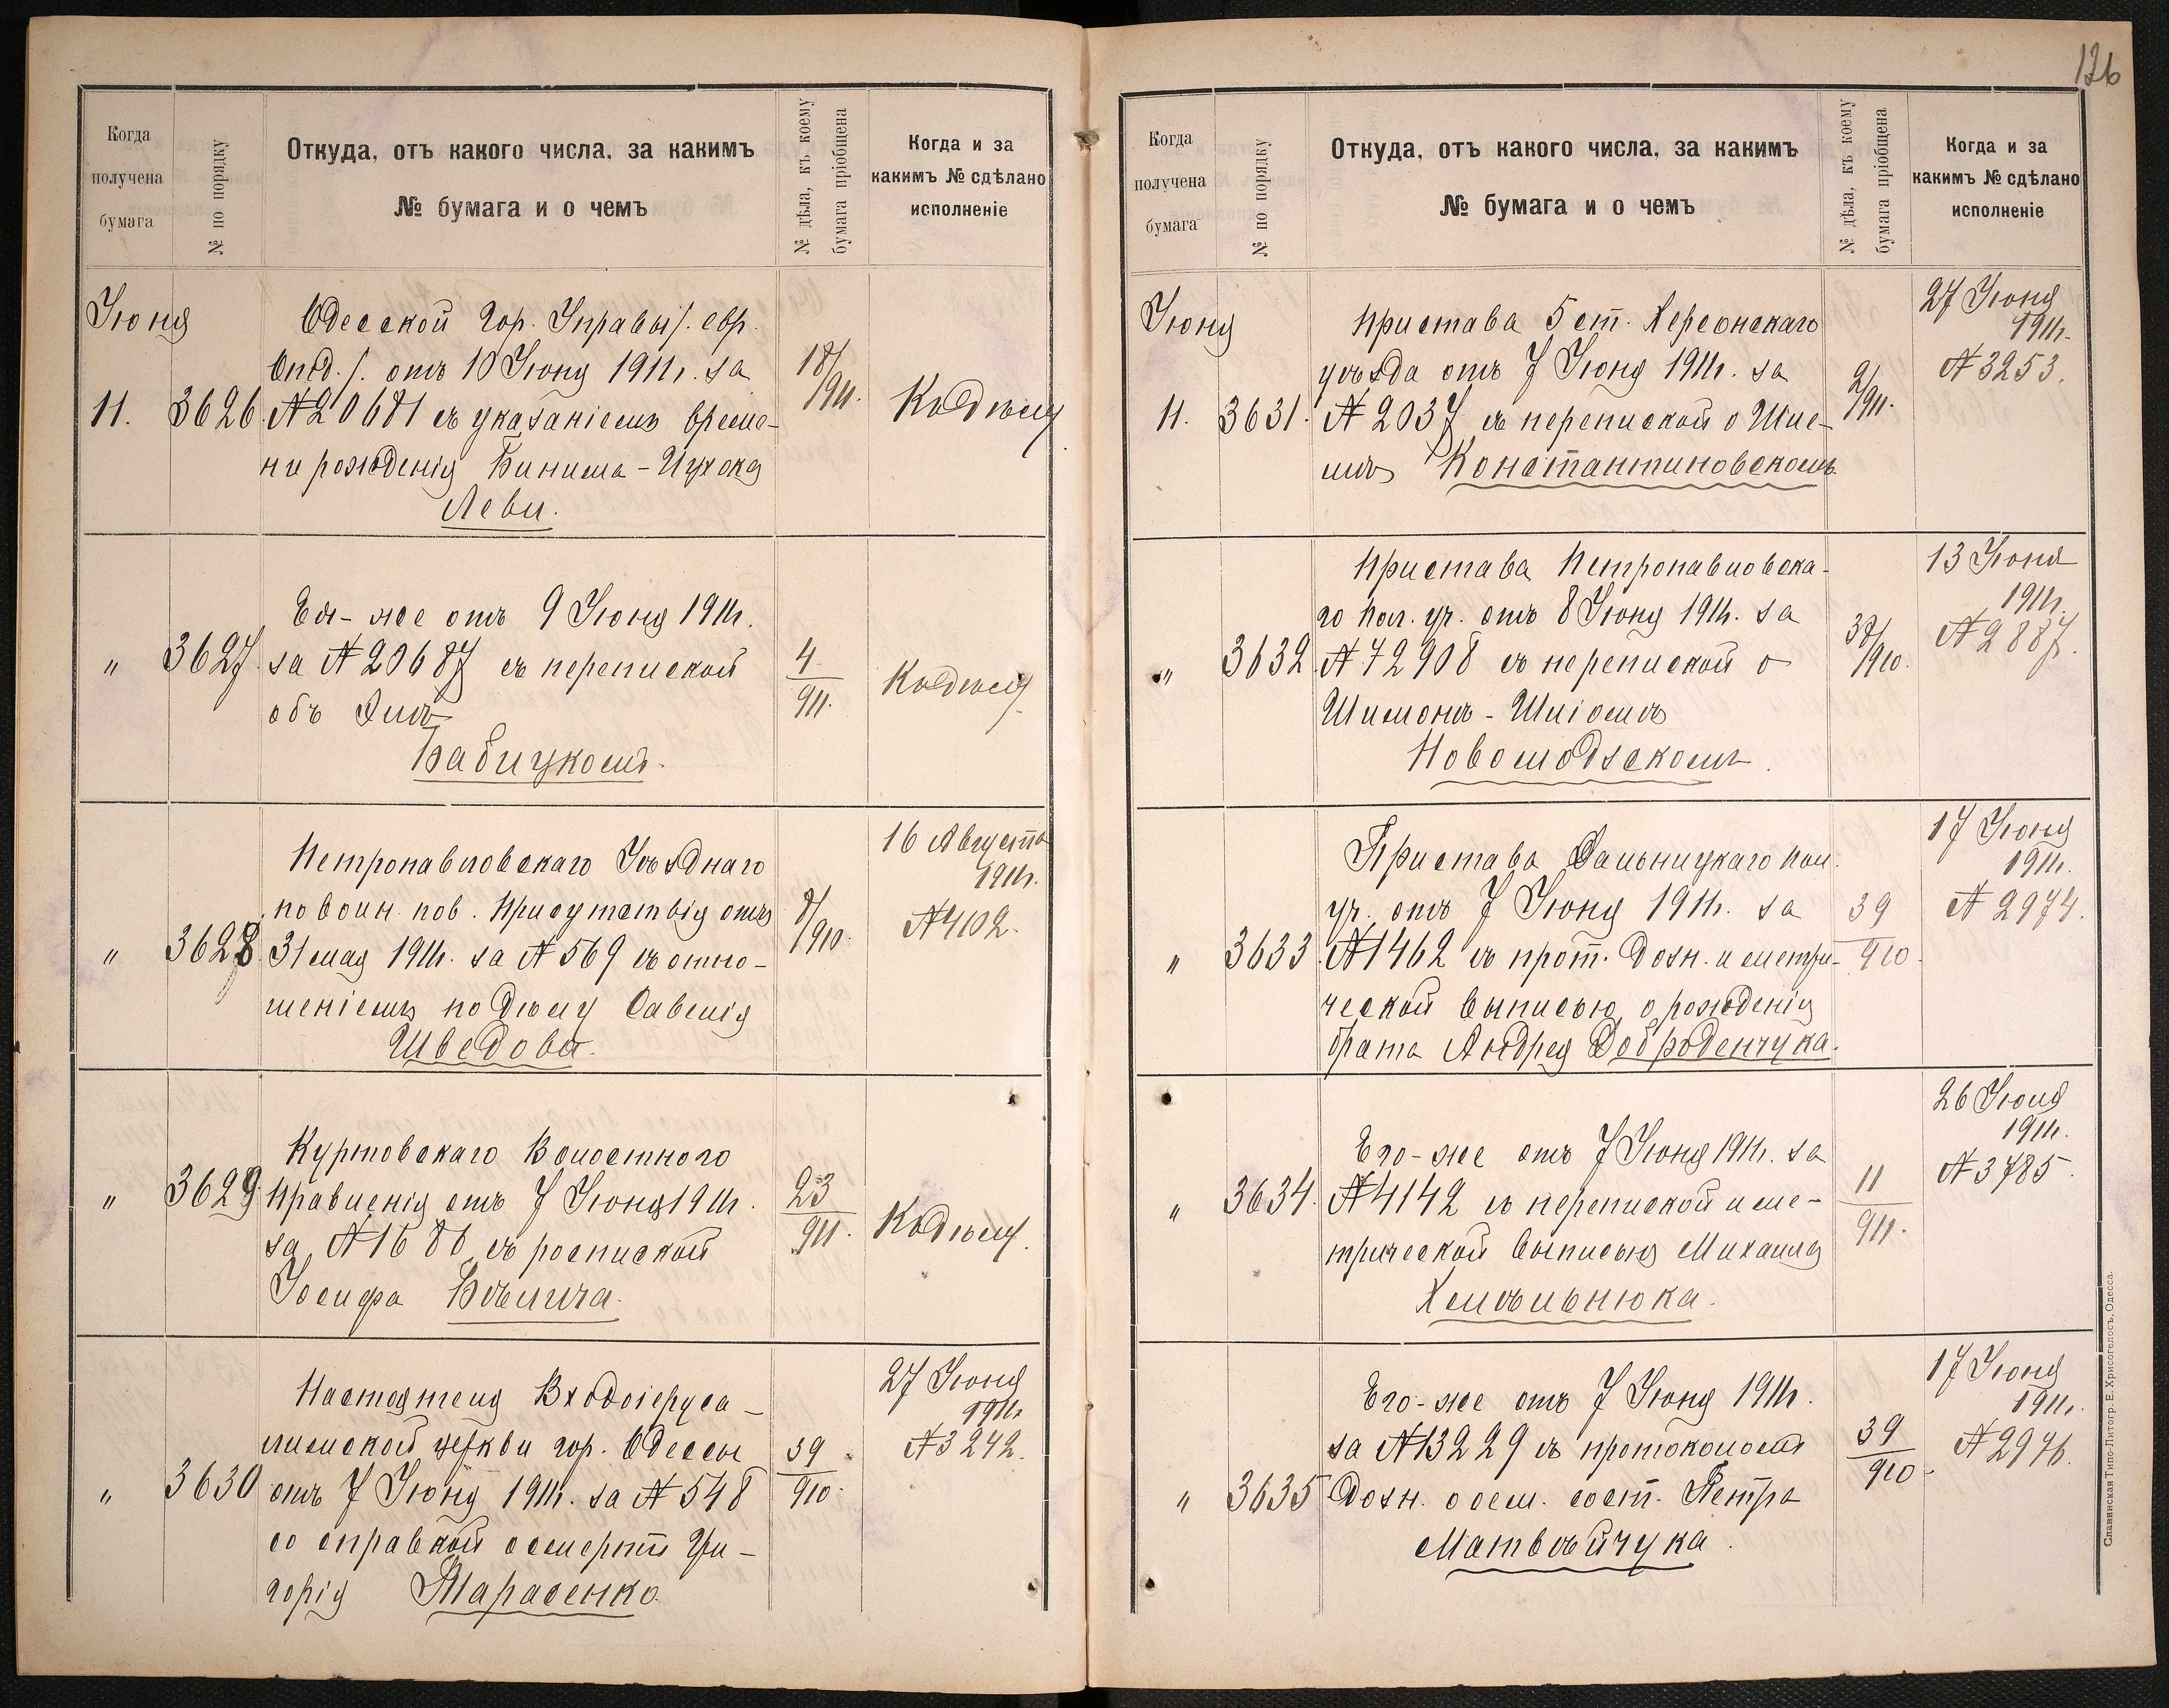 126
Когда
получена
бумага
№ по порядку
Откуда, отъ какого числа, за какимъ
№ бумага и о чемъ
№ дѣла, къ коему
бумага пріобщена
Когда и за
какимъ № сдѣлано
исполненіе
Іюня
11.
3626.
Одесской Гор. Управы /. евр.
отд. /. отъ 10 Іюня 1911г. за
№ 20681 съ указаніемъ време-
ни рожденія
Леви.
18/1911.
Къ дѣлу
"
3627.
Ея-же отъ 9 Іюня 1911г.
за № 20687 съ перепиской
объ
Бабицкомъ.
4
911.
Къ дѣлу
"
3628.
Петропавловскаго Уѣзднаго
по воин. пов. Присутствія отъ
31 мая 1911г. за № 569 съ отно-
шеніемъ по дѣлу Савелія
Шведова.
8/1910.
16 Августа
1911г.
№ 4102.
"
3629
Куртовскаго Волостного
Правленія отъ 7 Іюня 1911г.
за № 1686 съ роспиской
Іосифа
23
911.
Къ дѣлу.
"
3630
Настоятеля Входоіеруса-
лимской церкви гор. Одессы
отъ 7 Іюня 1911г. за № 548
со справкой о смерти Гри-
горія Тарасенко.
39
910.
27 Іюня
1911г
№ 3242.
Когда
получена
бумага
№ по порядку
Откуда, отъ какого числа, за какимъ
№ бумага и о чемъ
№ дѣла, къ коему
бумага пріобщена
Когда и за
какимъ № сдѣлано
исполненіе
Іюня
11.
3631.
Пристава 5 ст. Херсонскаго
уѣзда отъ 7 Іюня 1911г. за
№ 2037 съ перепиской о Шле-
мѣ Константиновскомъ
2/1911.
27 Іюня
1911г.
№ 3253.
"
3632.
Пристава Петропавловска-
го пол. уч. отъ 8 Іюня 1911г. за
№ 72908 съ перепиской о
Шимонѣ-Шліомѣ
Новомодзскомъ.
38/1910.
13 Іюня
1911г.
№ 2887.
"
3633.
Пристава Дальницкаго пол.
уч. отъ 7 Іюня 1911г. за
№ 1462 съ прот. дозн. и метри-
ческой выписью о рожденіи
брата Андрея Доброденчука.
39
910.
17 Іюня
1911г.
№ 2974.
"
3634.
Его-же отъ 7 Іюня 1911г. за
№ 4142 съ перепиской и ме-
трической выписью Михаила
Хмѣльнюка.
11
911.
26 Іюля
1911г.
№ 3785.
"
3635
Его-же отъ 7 Іюня 1911г.
за № 13229 съ протоколомъ
дозн. о сем. сост. Петра
Матвѣйчука.
39
910.
17 Іюня
1911г.
№ 2976.
Славянская Типо-Литогр. Е. Хрисогелосъ, Одесса.